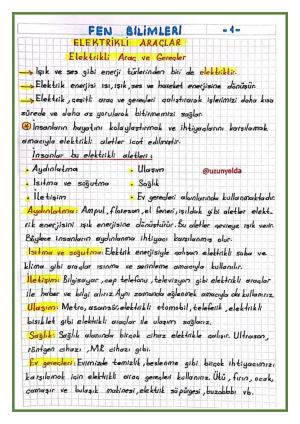 FEN BİLİMLERİ -1-
ELEKTRİKLİ ARAÇLAR
Elektrikli Araç ve Gereçler
→ Işık ve ses gibi enerji türlerinden biri de elektriktir.
→ Elektrik enerjisi ısı, ışık, ses ve hareket enerjisine dönüşür.
→ Elektrik, çeşitli araç ve gereçleri çalıştırarak işlerimizi daha kısa
sürede ve daha az yorularak bitirmemizi sağlar.
* İnsanların hayatını kolaylaştırmak ve ihtiyaçlarını karşılamak
amacıyla elektrikli aletler icat edilmiştir.
İnsanlar bu elektrikli aletleri;
• Aydınlatma • Ulaşım @uzunyelda
• Isıtma ve soğutma • Sağlık
• İletişim • Ev gereçleri alanlarında kullanmaktadır.
Aydınlatma: Ampul, floresan, el feneri, ışıldak gibi aletler elekt-
rik enerjisini ışık enerjisine dönüştürür. Bu aletler çevreye ışık verir.
Böylece insanların aydınlanma ihtiyacı karşılanmış olur.
Isıtma ve soğutma: Elektrik enerjisiyle çalışan elektrikli soba ve
klima gibi araçlar ısınma ve serinleme amacıyla kullanılır.
İletişim: Bilgisayar, cep telefonu, televizyon gibi elektrikli araçlar
ile haber ve bilgi alırız. Aynı zamanda eğlenmek amacıyla da kullanırız.
Ulaşım: Metro, asansör, elektrikli otomobil, teleferik, elektrikli
bisiklet gibi elektrikli araçlar ile ulaşım sağlarız.
Sağlık: Sağlık alanında birçok cihaz elektrikle çalışır. Ultrason,
röntgen cihazı, MR cihazı gibi.
Ev gereçleri: Evimizde temizlik, beslenme gibi birçok ihtiyacımızı
karşılamak için elektrikli araç gereçleri kullanırız. Ütü, fırın, ocak,
çamaşır ve bulaşık makinesi, elektrik süpürgesi, buzdolabı vb.